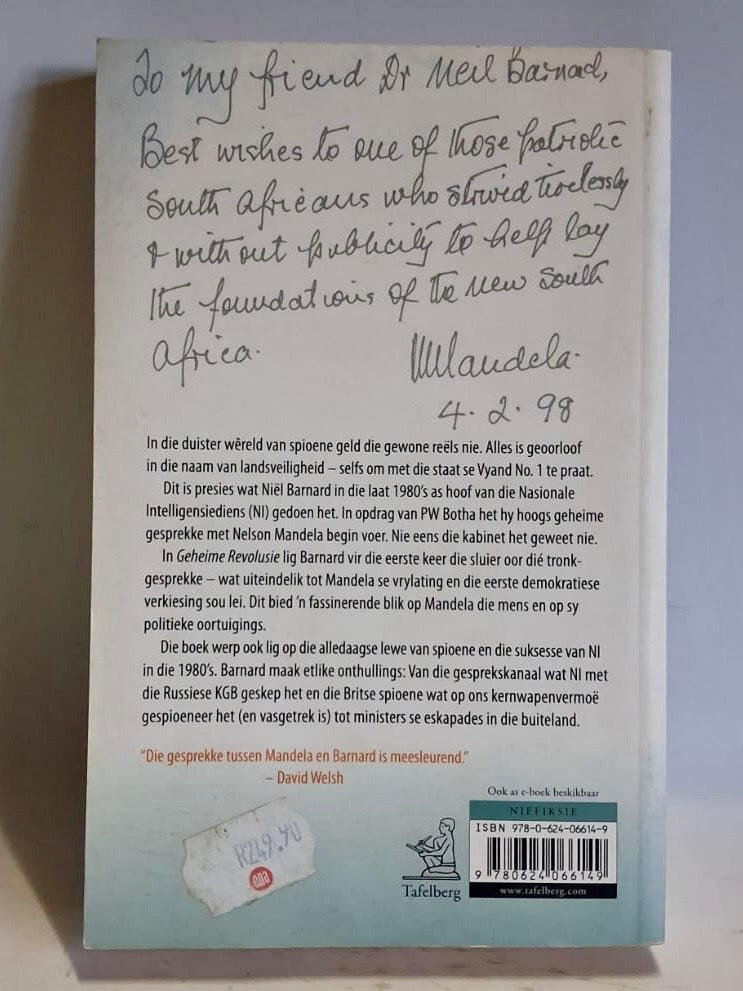 To my friend Dr Neil Barnad,
Best wishes to one of those patriotic
South Africans who strived tirelessly
& without publicity to help lay
the foundations of the new South
Africa.
NMandela.
4.2.98
In die duister wêreld van spioene geld die gewone reëls nie. Alles is geoorloof
in die naam van landsveiligheid – selfs om met die staat se Vyand No. 1 te praat.
Dit is presies wat Niël Barnard in die laat 1980's as hoof van die Nasionale
Intelligensiediens (NI) gedoen het. In opdrag van PW Botha het hy hoogs geheime
gesprekke met Nelson Mandela begin voer. Nie eens die kabinet het geweet nie.
In Geheime Revolusie lig Barnard vir die eerste keer die sluier oor dié tronk-
gesprekke – wat uiteindelik tot Mandela se vrylating en die eerste demokratiese
verkiesing sou lei. Dit bied 'n fassinerende blik op Mandela die mens en op sy
politieke oortuigings.
Die boek werp ook lig op die alledaagse lewe van spioene en die suksesse van NI
in die 1980's. Barnard maak etlike onthullings: Van die gesprekskanaal wat NI met
die Russiese KGB geskep het en die Britse spioene wat op ons kernwapenvermoë
gespioeneer het (en vasgetrek is) tot ministers se eskapades in die buiteland.
"Die gesprekke tussen Mandela en Barnard is meesleurend."
– David Welsh
Ook as e-boek beskikbaar
NIEFIKSIE
ISBN 978-0-624-06614-9
9 780624 066149
www.tafelberg.com
Tafelberg
R249.90
cna